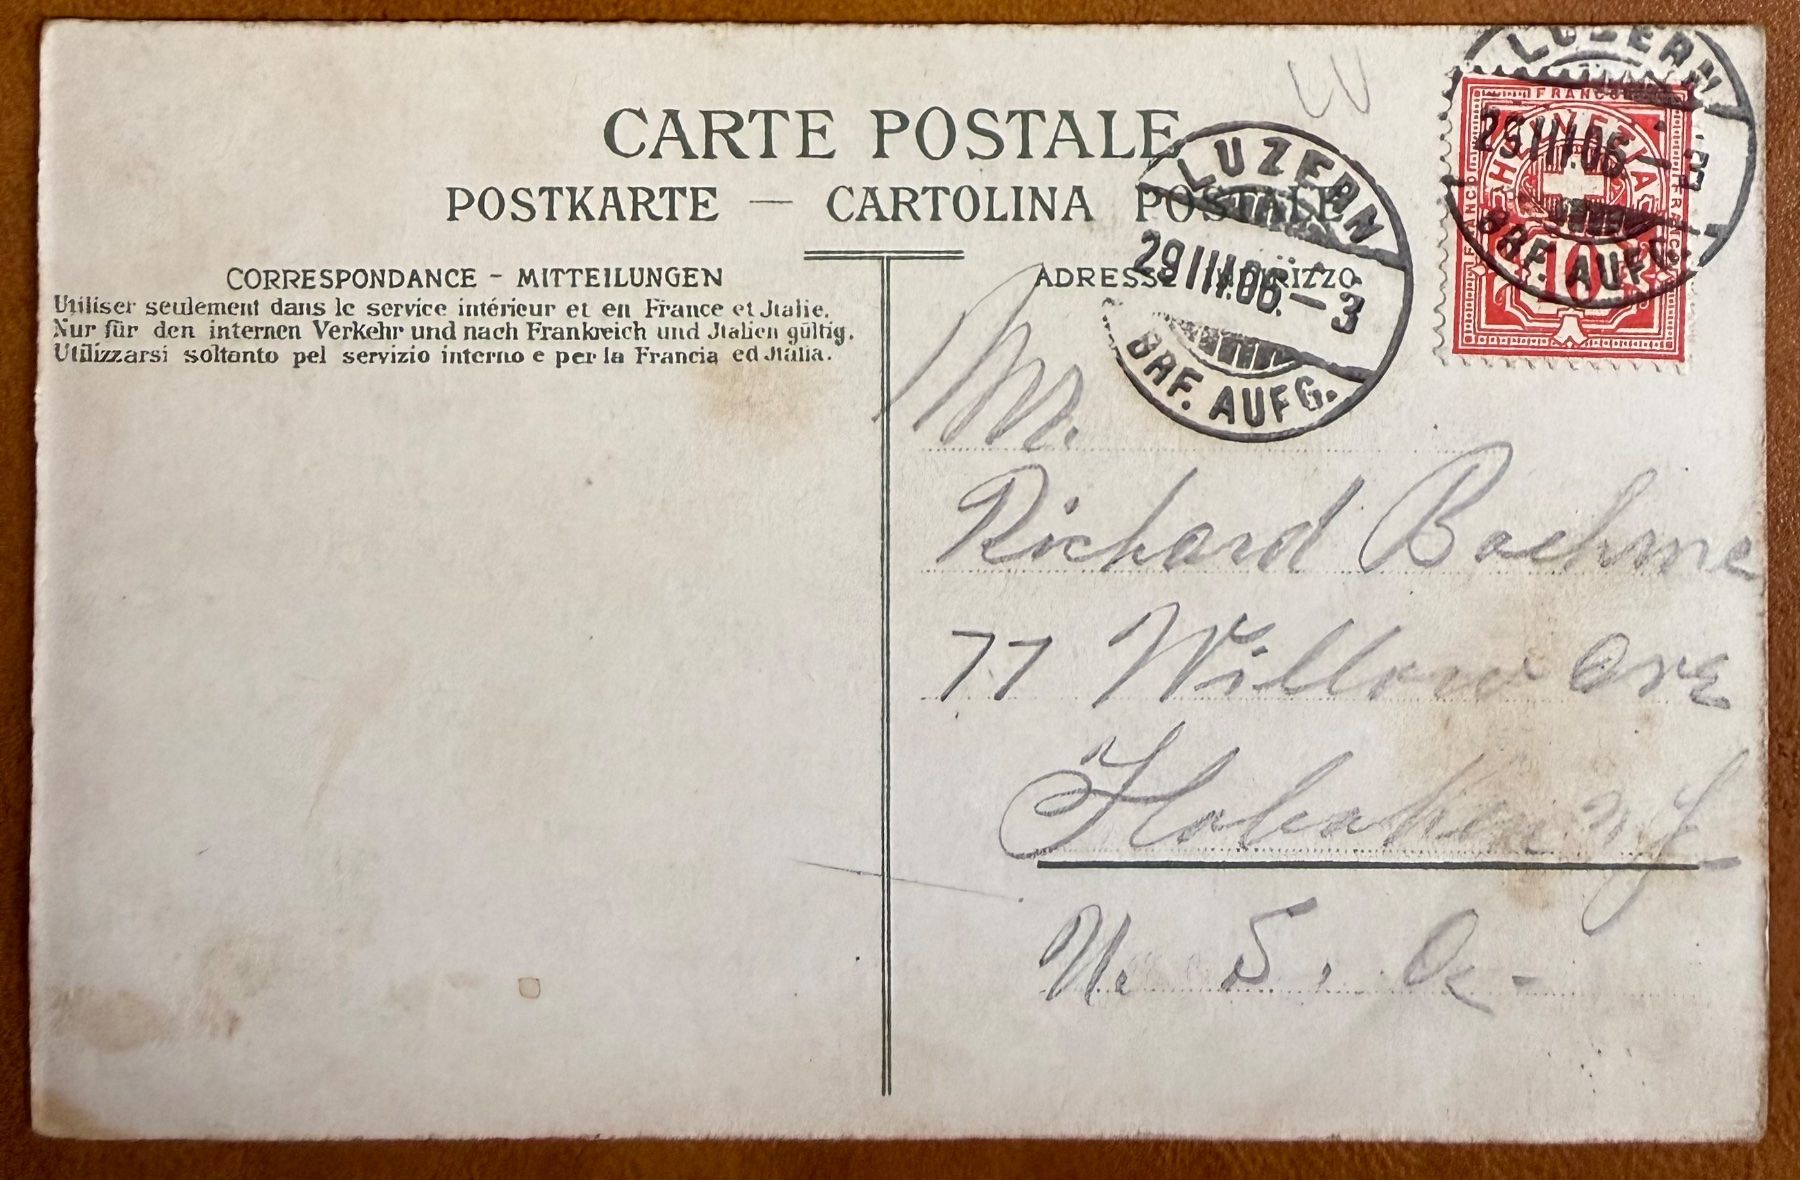 CARTE POSTALE
POSTKARTE — CARTOLINA POSTALE
CORRESPONDANCE - MITTEILUNGEN
Utiliser seulement dans le service intérieur et en France et Jtalie.
Nur für den internen Verkehr und nach Frankreich und Jtalien gültig.
Utilizzarsi soltanto pel servizio interno e per la Francia ed Jtalia.
ADRESSE INDIRIZZO
LUZERN
29 III.06.–3
BRF. AUFG.
LUZERN
29 III.06.–3
BRF. AUFG.
FRANCO
FRANCO
FRANCO
HELVETIA
10
Mr.
Richard Boehme
77 Willow Ave
Hoboken N J
U. S. A.